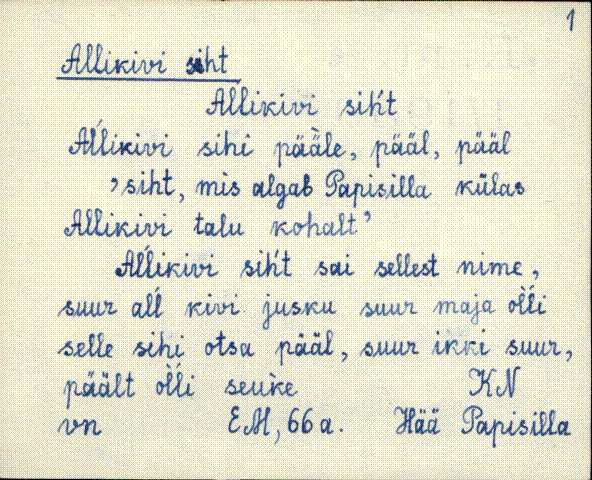 1
Allikivi siht
Allikivi sih́t
Aĺlikivi sihi pääl̀e, pääl, pääl
’siht, mis algab Papisilla külas
Allikivi talu kohalt’
Aĺlikivi sih́t sai sellest nime,
suur aĺl kivi jusku suur maja oĺli
selle sihi otsa pääl, suur ikki suur,
päält oĺli seuk̀e KN
vn EM, 66 a. Hää Papisilla